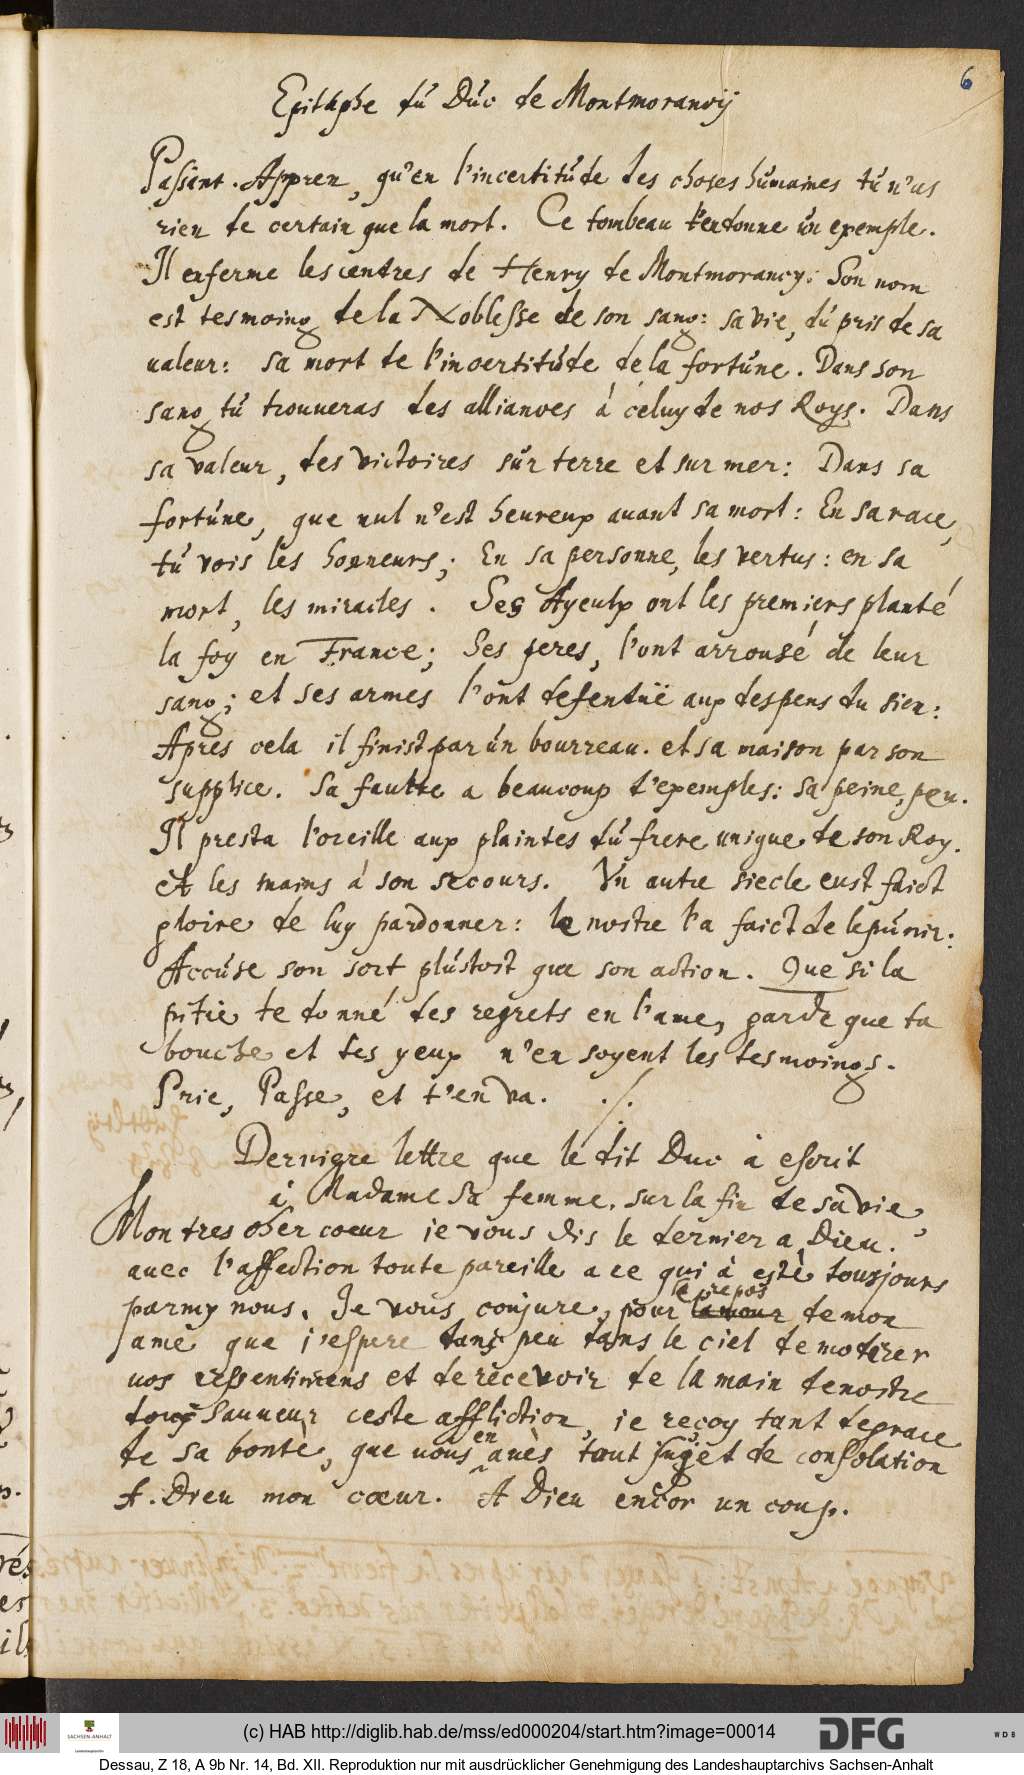 6
Epitaphe dú Dúc de Montmorancij
Passant. Appren, qu'en l'incertitúde des choses húmaines tú n'as
rien de certain que la mort. Ce tombeau t'en donne ún exemple.
Il enferme les cendres de Henry de Montmorancy: Son nom
est tesmoing de la Noblesse de son sang: sa vie, dú pris de sa
ualeur: sa mort de l'incertitúde de la fortúne. Dans son
sang tú trouueras des alliances à celuy de nos Roys. Dans
sa valeur, des victoires súr terre et sur mer: Dans sa
fortúne, que nul n'est heureux auant sa mort: En sa race,
tú vois les honneurs; En sa personne, les vertus: en sa
mort, les miracles. Ses Ayeulx ont les premiers planté
la foy en France; Ses peres, l'ont arrousé de leur
sang; et ses armes l'ont defenduë aux despens du sien:
Apres cela il finist par ún bourreau. et sa maison par son
supplice. Sa faulte a beaucoup d'exemples: sa peine, peu.
Il presta l'oreille aux plaintes dú frere unique de son Roy.
et les mains à son secours. Vn autre siecle eust faict
gloire de luy pardonner: le nostre l'a faict de le púnir:
Accúse son sort plústost que son action. Que si la
pitié te donné des regrets en l'ame, garde que ta
bouche et tes yeux n'en soyent les tesmoings.
Prie, Passe, et t'en va. ./.
Derniere lettre que le dit Duc à escrit
à Madame Sa femme. sur la fin de sa vie,
Mon tres cher coeur ie vous dis le dernier a Dieu.
auec l'affection toute pareille a ce qui à esté tousjours
parmy nous. Je vous conjure, pour le repos de mon
ame que j'espere dans peu dans le ciel de moderer
vos ressentimens et de recevoir de la main de nostre
doux Sauueur ceste affliction, ie reçoy tant de grace
de sa bonté, que vous en aués tout suget de consolation
A. Dieu mon coeur. A Dieu encor un coup.
(c) HAB http://diglib.hab.de/mss/ed000204/start.htm?image=00014
SACHSEN-ANHALT
DFG
WDB
Dessau, Z 18, A 9b Nr. 14, Bd. XII. Reproduktion nur mit ausdrücklicher Genehmigung des Landeshauptarchivs Sachsen-Anhalt